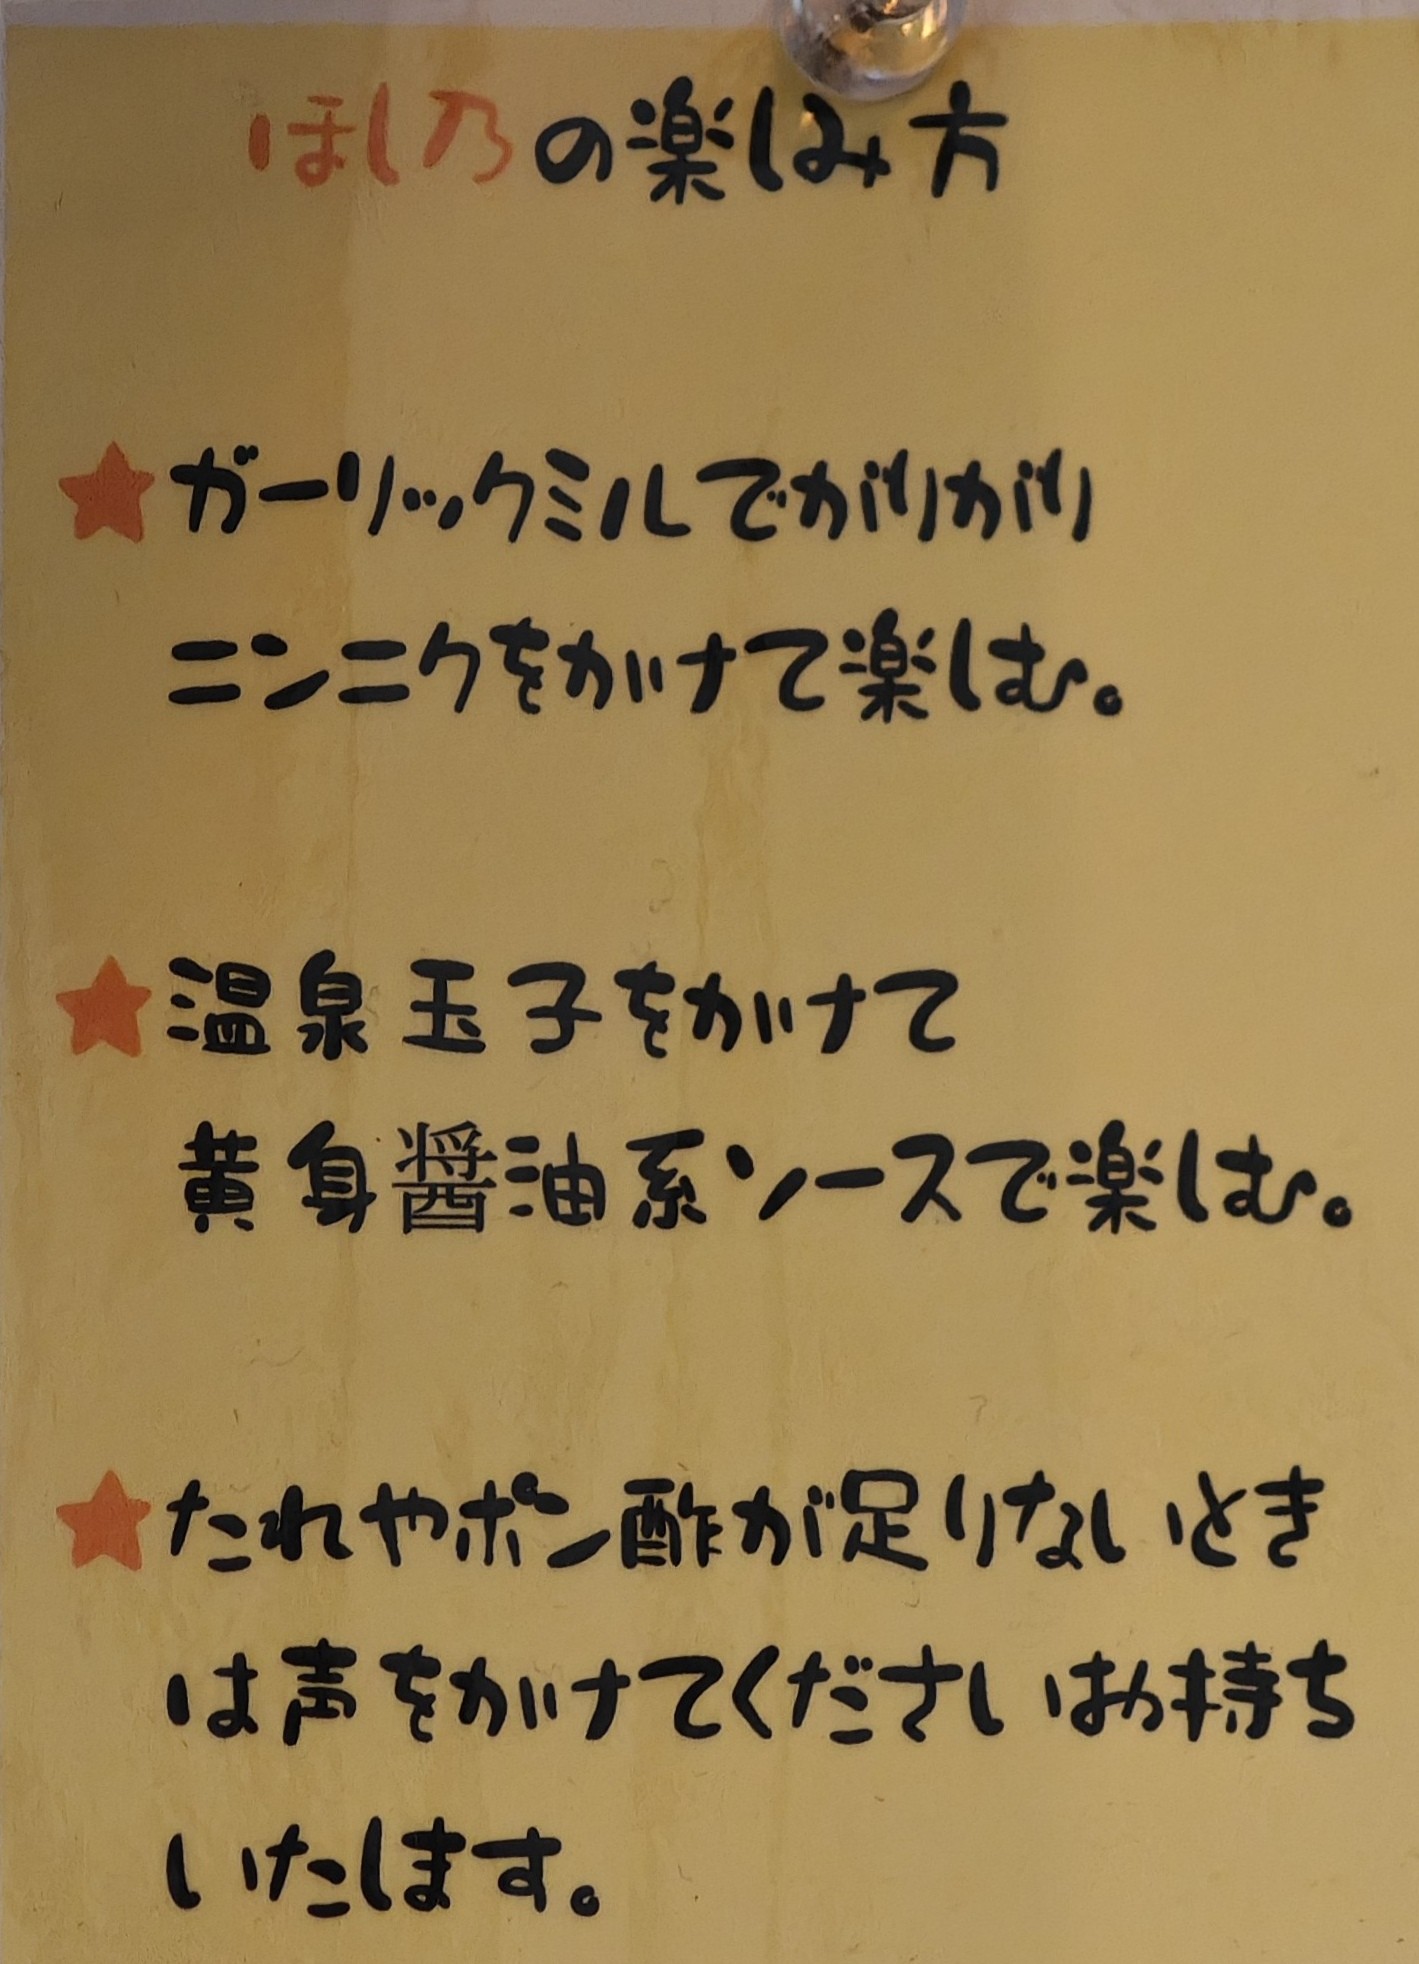 ほし乃の楽しみ方
★ガーリックミルでがりがり
ニンニクをかけて楽しむ。
★温泉玉子をかけて
黄身醤油系ソースで楽しむ。
★たれやポン酢が足りないとき
は声をかけてくださいお持ち
いたします。